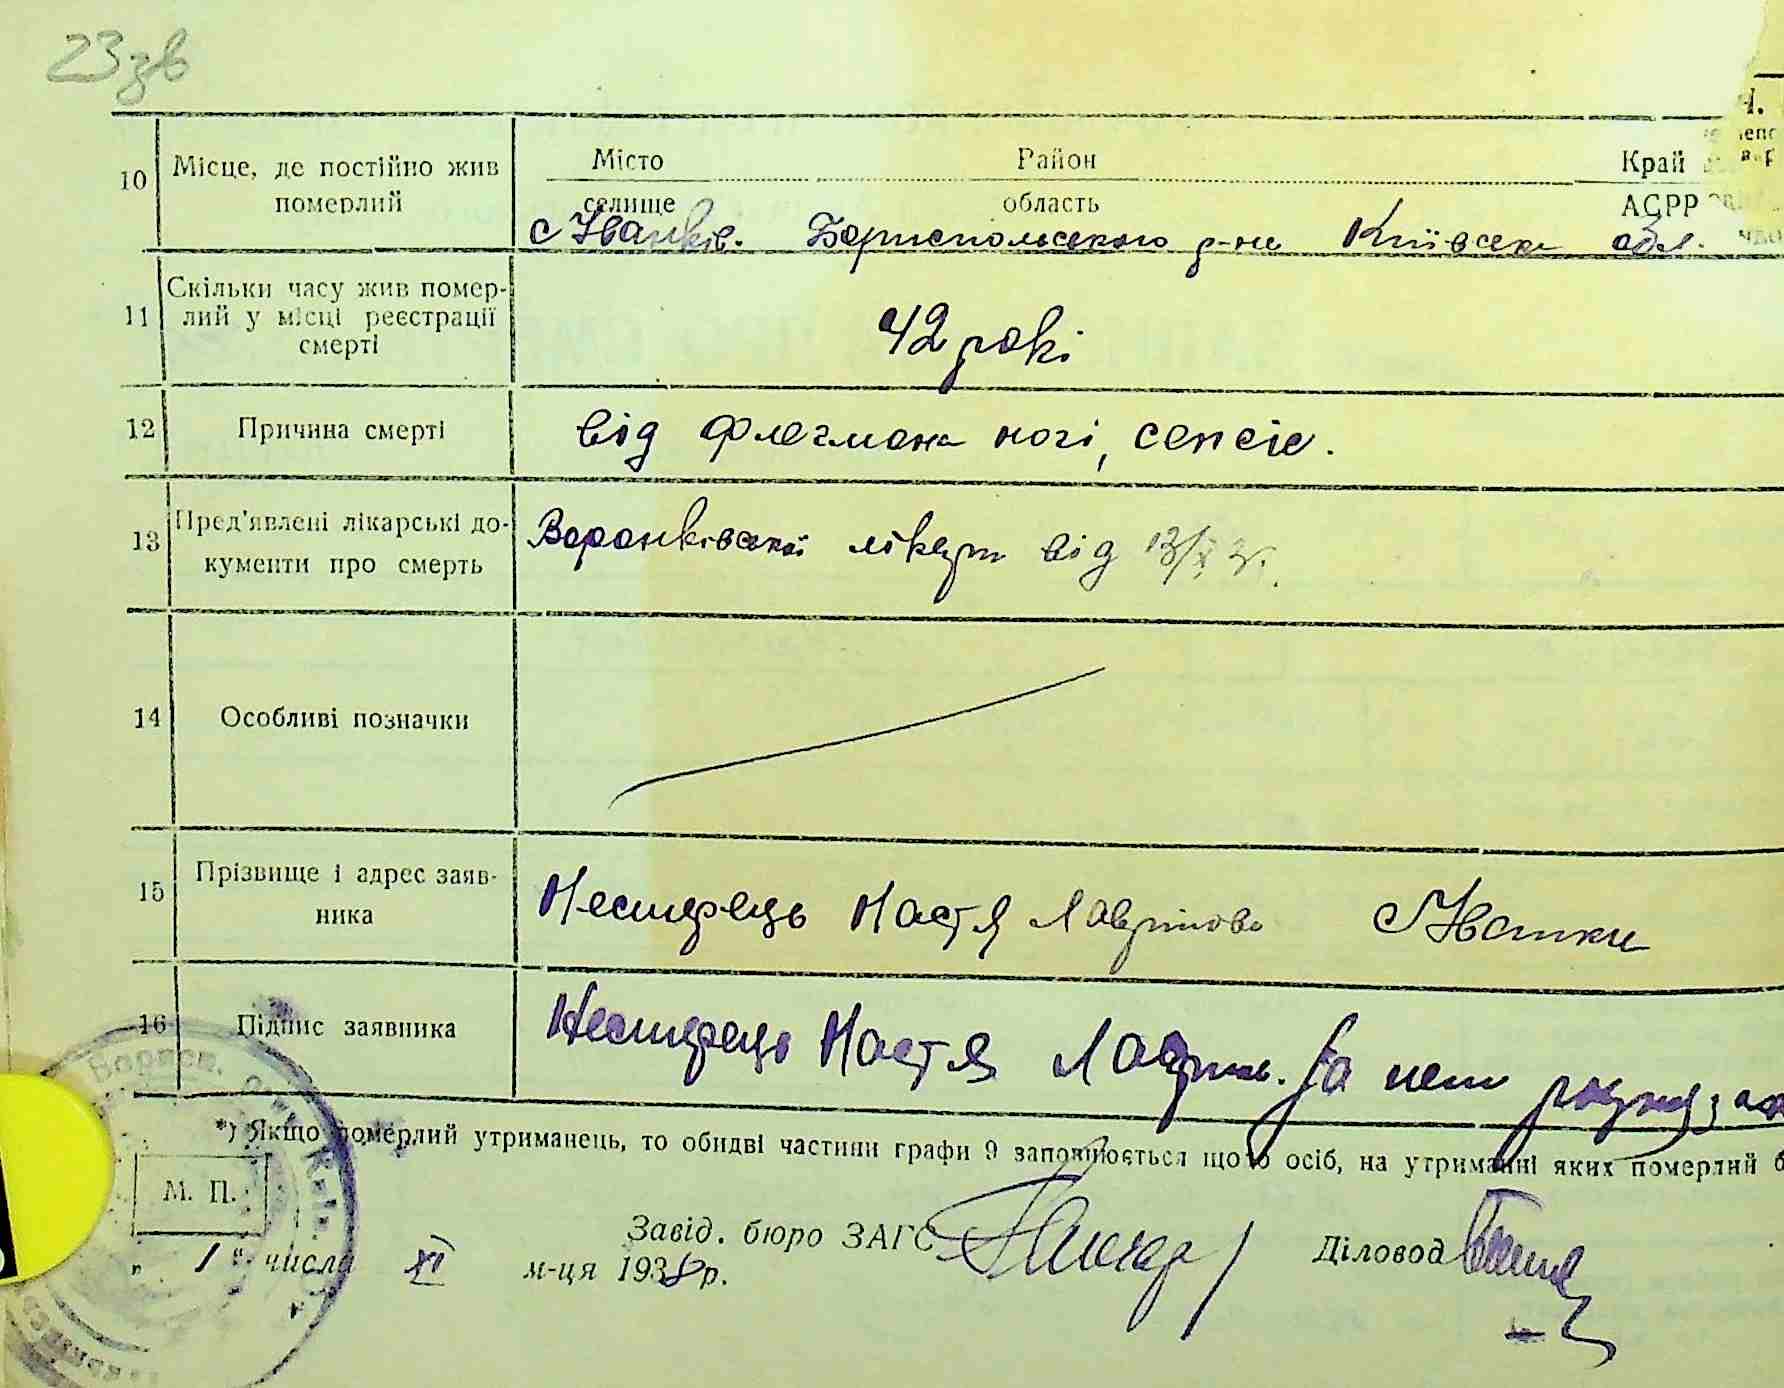 23зв
10 Місце, де постійно жив померлий
Місто Район Край
селище область АСРР
с Іванків. Бориспольського р-на Київськ обл.
11 Скільки часу жив помер-
лий у місці реєстрації
смерті
42 рокі
12 Причина смерті від флегмона ногі, сепсіс.
13 Пред'явлені лікарські до-
кументи про смерть
Воронківської лікарн від 13/X
14 Особливі позначки
15 Прізвище і адрес заяв-
ника
Нестирець Настя Лаврінова с Іванки
16 Підпис заявника
Нестирець Настя Лаврін. За неп
*) Якщо померлий утриманець, то обидві частини графи 9 заповнюється щодо осіб, на утриманні яких померлий б
М. П.
Завід. бюро ЗАГС Діловод
„ 1 " числа XI м-ця 1938 р.